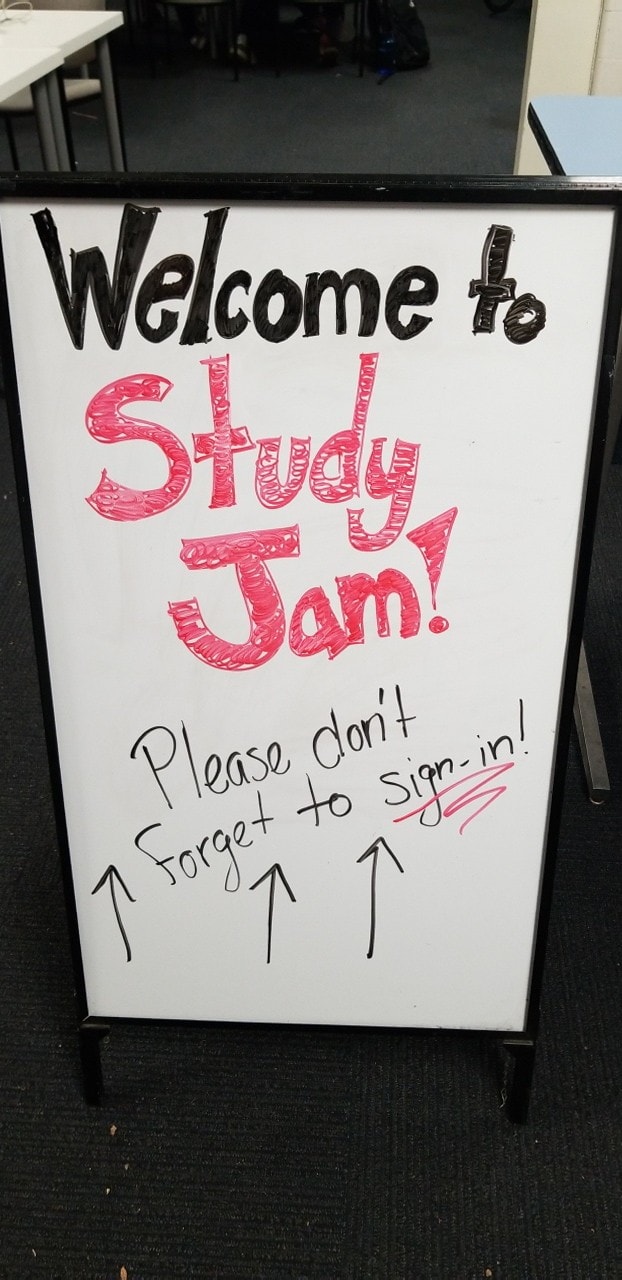 Welcome to
Study
Jam!
Please don't
forget to sign-in!